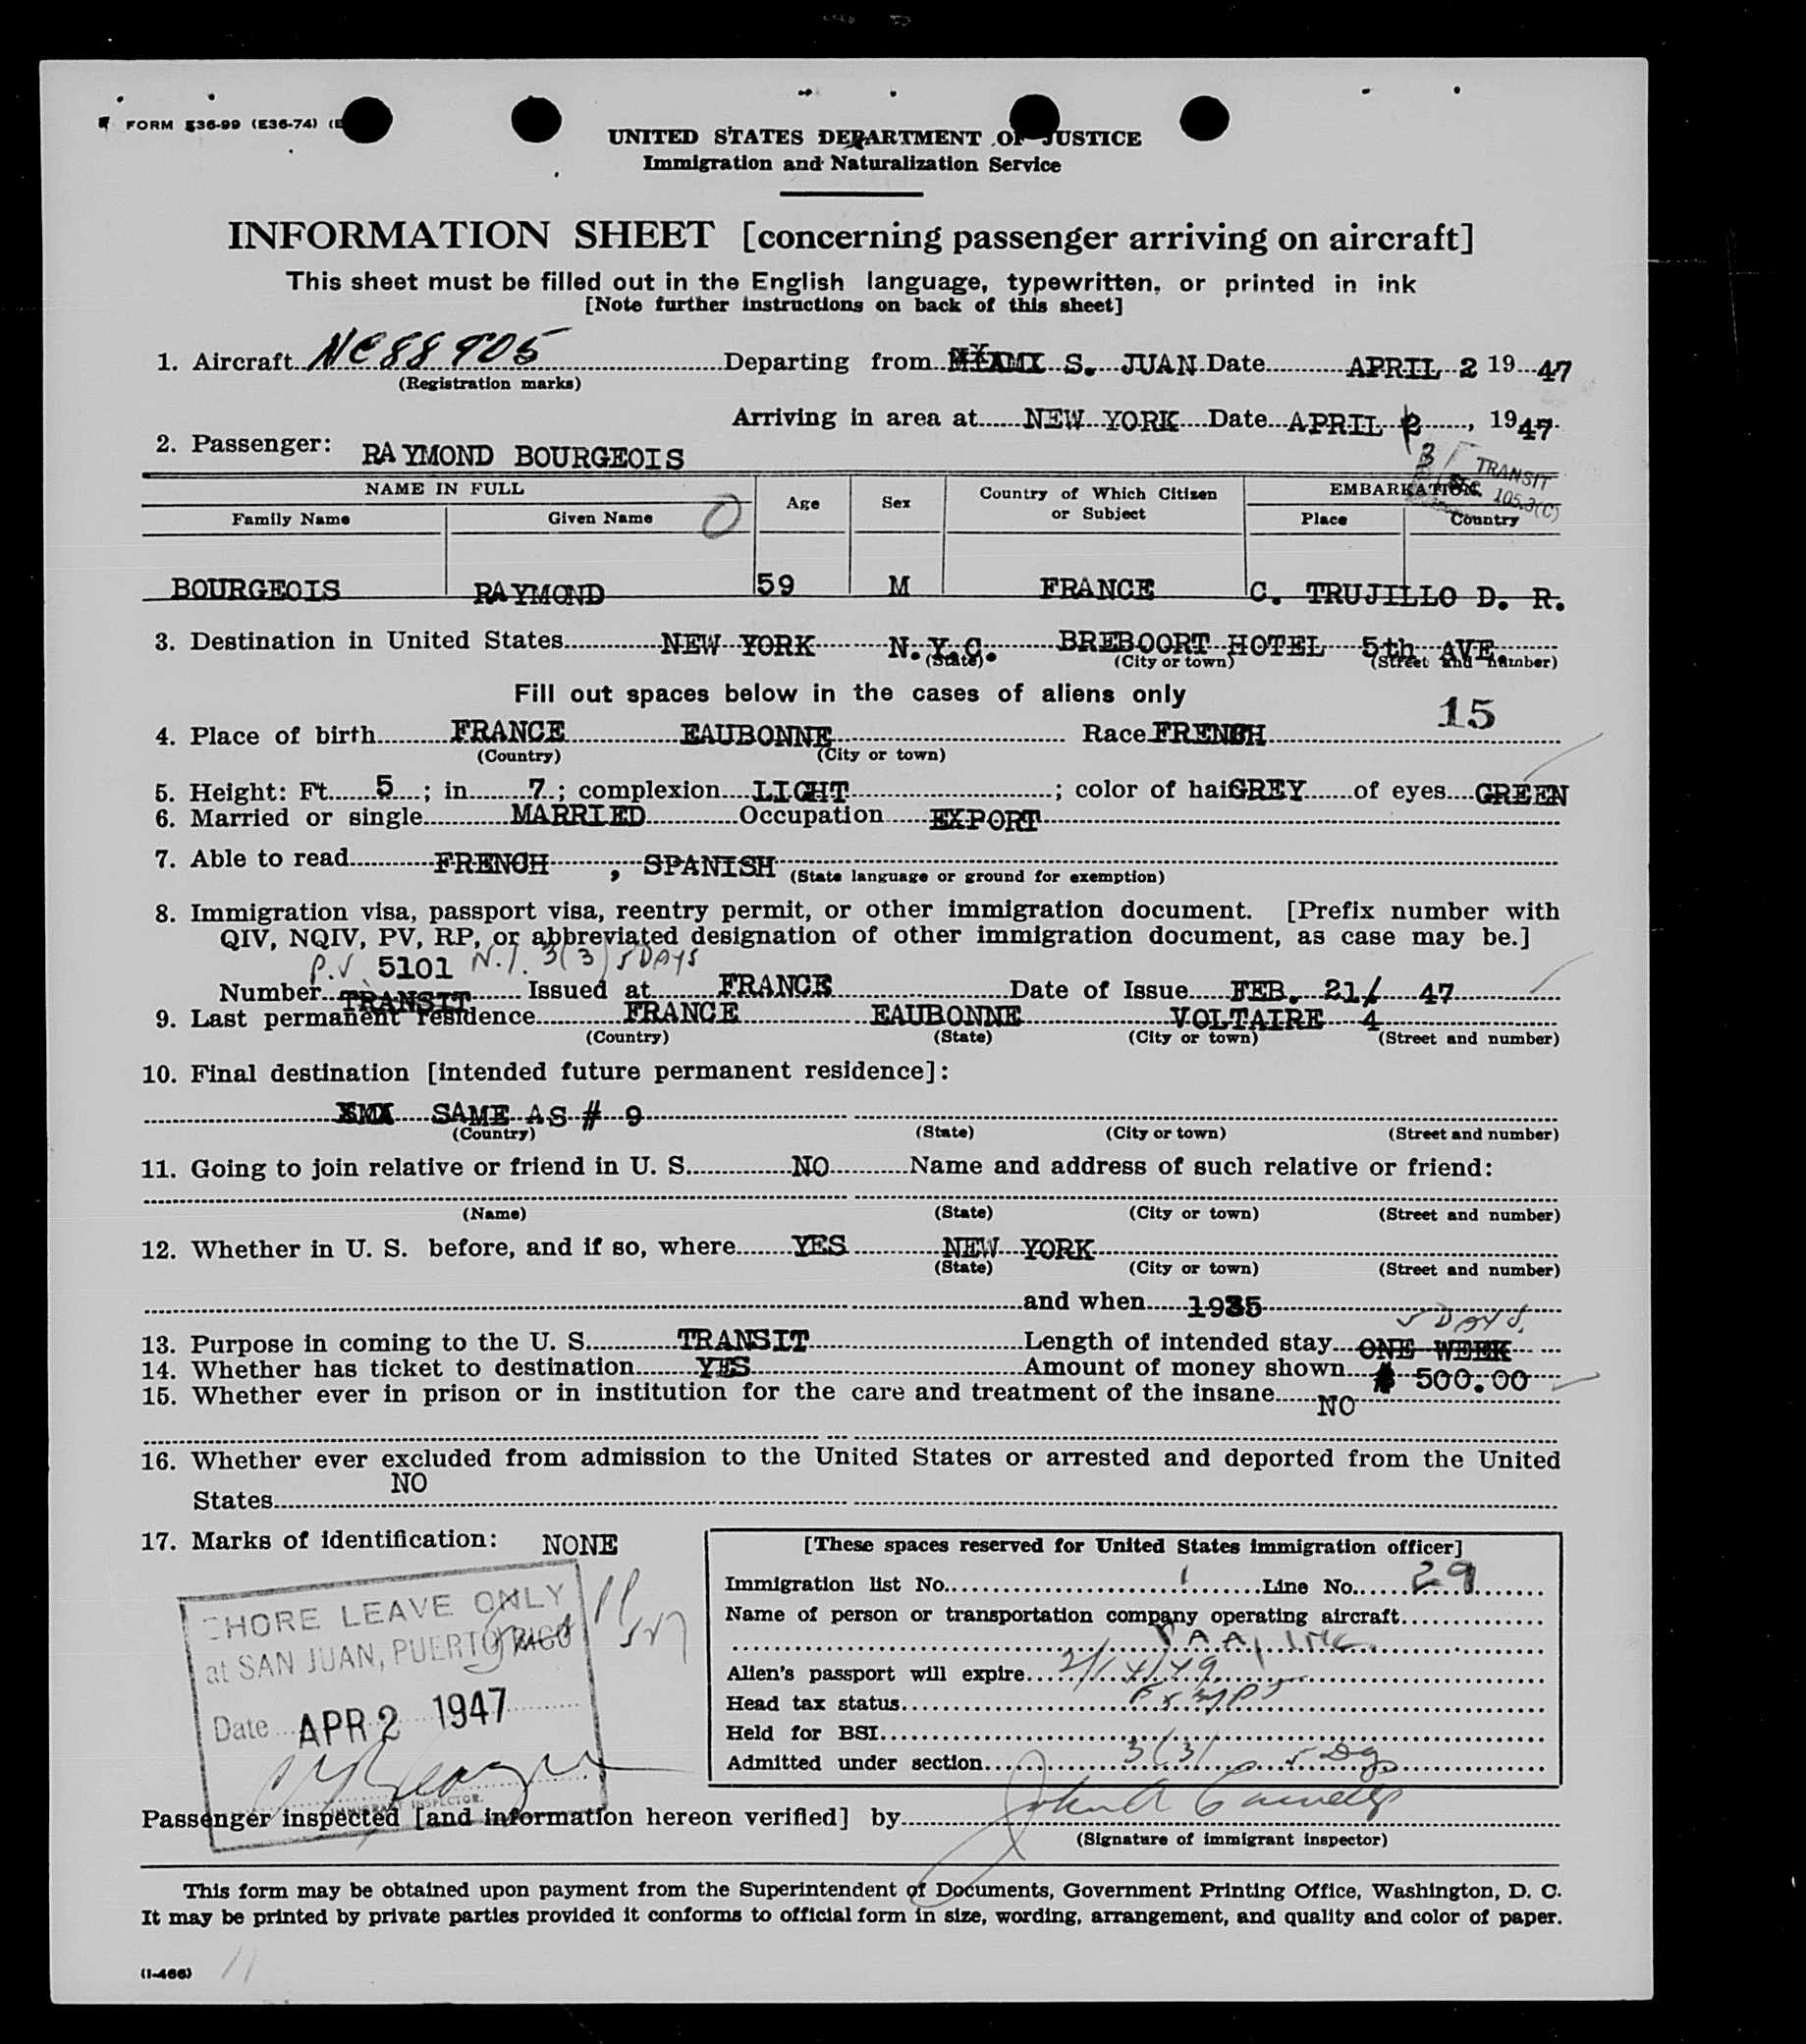 FORM 536-99 (E36-74) (E
UNITED STATES DEPARTMENT OF JUSTICE
Immigration and Naturalization Service
INFORMATION SHEET [concerning passenger arriving on aircraft]
This sheet must be filled out in the English language, typewritten, or printed in ink
[Note further instructions on back of this sheet]
1. Aircraft NC88905 Departing from MIAMI S. JUAN Date APRIL 2 1947
(Registration marks)
Arriving in area at NEW YORK Date APRIL 2, 1947
3
2. Passenger: RAYMOND BOURGEOIS
TRANSIT
105.3(C)
NAME IN FULL Age Sex Country of Which Citizen or Subject EMBARKATION
Family Name Given Name Place Country
BOURGEOIS RAYMOND 59 M FRANCE C. TRUJILLO D. R.
3. Destination in United States NEW YORK N.Y.C. BREBOORT HOTEL 5th AVE.
(State) (City or town) (Street and number)
Fill out spaces below in the cases of aliens only
15
4. Place of birth FRANCE EAUBONNE Race FRENCH
(Country) (City or town)
5. Height: Ft. 5; in 7; complexion LIGHT; color of hai GREY of eyes GREEN
6. Married or single MARRIED Occupation EXPORT
7. Able to read FRENCH, SPANISH
(State language or ground for exemption)
8. Immigration visa, passport visa, reentry permit, or other immigration document. [Prefix number with
QIV, NQIV, PV, RP, or abbreviated designation of other immigration document, as case may be.]
P.V. 5101 3(3) 5 DAYS
Number TRANSIT Issued at FRANCE Date of Issue FEB. 21/ 47
9. Last permanent residence FRANCE EAUBONNE VOLTAIRE 4
(Country) (State) (City or town) (Street and number)
10. Final destination [intended future permanent residence]:
SAME AS # 9
(Country) (State) (City or town) (Street and number)
11. Going to join relative or friend in U. S. NO Name and address of such relative or friend:
(Name) (State) (City or town) (Street and number)
12. Whether in U. S. before, and if so, where YES NEW YORK
(State) (City or town) (Street and number)
and when 1935
5 DAYS.
13. Purpose in coming to the U. S. TRANSIT Length of intended stay ONE WEEK
14. Whether has ticket to destination YES Amount of money shown $ 500.00
15. Whether ever in prison or in institution for the care and treatment of the insane NO
16. Whether ever excluded from admission to the United States or arrested and deported from the United
States NO
17. Marks of identification: NONE
[These spaces reserved for United States immigration officer]
Immigration list No. 1 Line No. 29
Name of person or transportation company operating aircraft
PAA, INC
Alien's passport will expire
Head tax status EXEMPT
Held for BSI
Admitted under section 3(3) 5 Dys
SHORE LEAVE ONLY
at SAN JUAN, PUERTO RICO
Date APR 2 1947
IMMIGRANT INSPECTOR.
Passenger inspected [and information hereon verified] by John A
(Signature of immigrant inspector)
This form may be obtained upon payment from the Superintendent of Documents, Government Printing Office, Washington, D. C.
It may be printed by private parties provided it conforms to official form in size, wording, arrangement, and quality and color of paper.
(I-466) 11